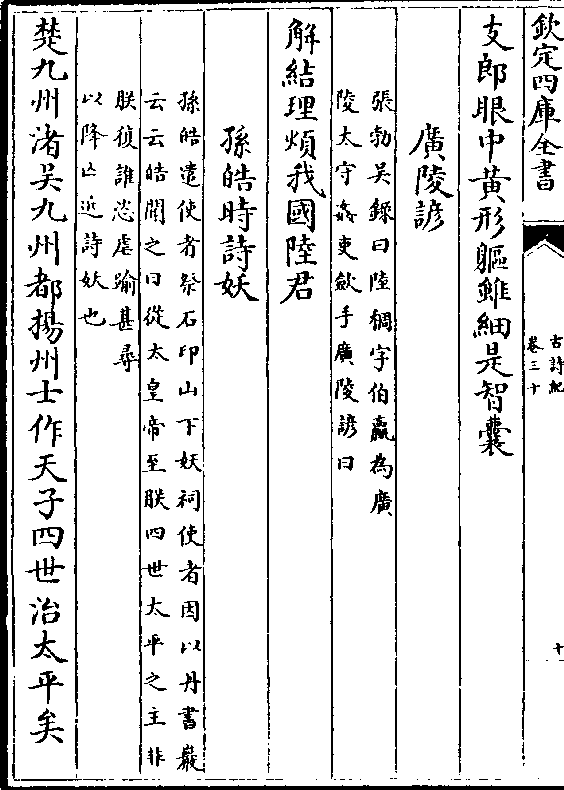 欽定四庫全書
古詩紀
卷三十
十
支郎眼中黃形軀雖細是智囊
廣陵諺
張勃吳錄曰陸稠字伯羸為廣
陵太守姦吏歛手廣陵諺曰
解結理煩我國陸君
孫皓時詩妖
孫皓遣使者祭石印山下妖祠使者因以丹書巖
云云皓聞之曰從太皇帝至朕四世太平之主非
朕復誰恣虐踰甚尋
以降亡近詩妖也
楚九州渚吳九州都揚州士作天子四世治太平矣